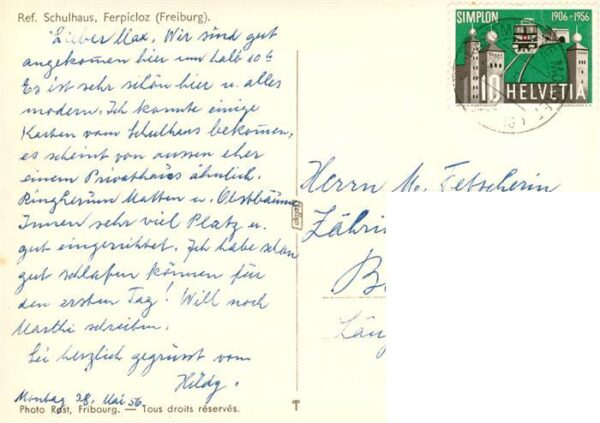 Ref. Schulhaus, Ferpicloz (Freiburg).
Lieber Max. Wir sind gut
angekommen hier um halb 10 h
Es ist sehr schön hier u. alles
modern. Ich konnte einige
Karten vom Schulhaus bekommen,
es scheint von aussen eher
einem Privathaus ähnlich.
Ringherum Matten u. Obstbäume
Innen sehr viel Platz u.
gut eingerichtet. Ich habe schon
gut schlafen können für
den ersten Tag! Will noch
Marthi schreiben.
Sei herzlich gegrüsst vom
Hildy.
Montag 28. Mai 56
Photo Rast, Fribourg. — Tous droits réservés.
SIMPLON 1906-1956
10 HELVETIA
Herrn M. Tetscherin
Zährin